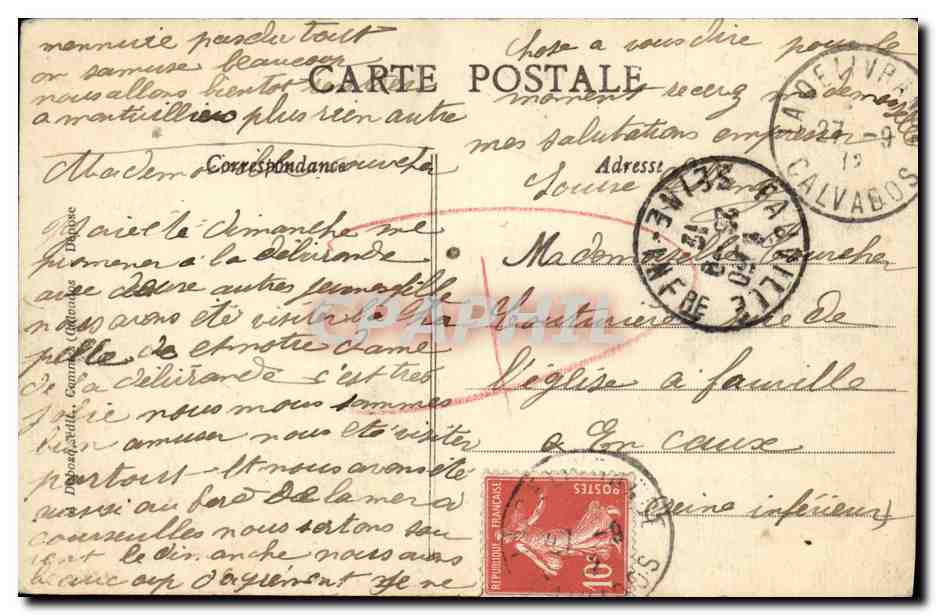 mennuie pas du tout
on samuse beaucoup
nous allons bientot
a montivilliers plus rien autre
chose a vous dire pour le
moment recevez mademoiselle
mes salutations empressées
Louise
CARTE POSTALE
Correspondance
Adresse
Mademoiselle
Mademoiselle
Couturière rue de
l'église a fauville
En Caux
Seine inférieure
Jai eté dimanche me
promener a la delivrande
avec deux autres jeune fille
nous avons été visiter la Cha
pelle de et notre Dame
de la délivrande c'est très
jolie nous nous sommes
bien amuser nous eté visiter
partout et nous avons été
aussi au bord de la mer a
courseulles nous sortons sou
vent le dimanche nous avons
beaucoup d'agrément je ne
LA DELIVRANDE
27 - 9
12
CALVADOS
FAUVILLE
SEINE INFRE
REPUBLIQUE FRANÇAISE
POSTES
10
CPAPHIL